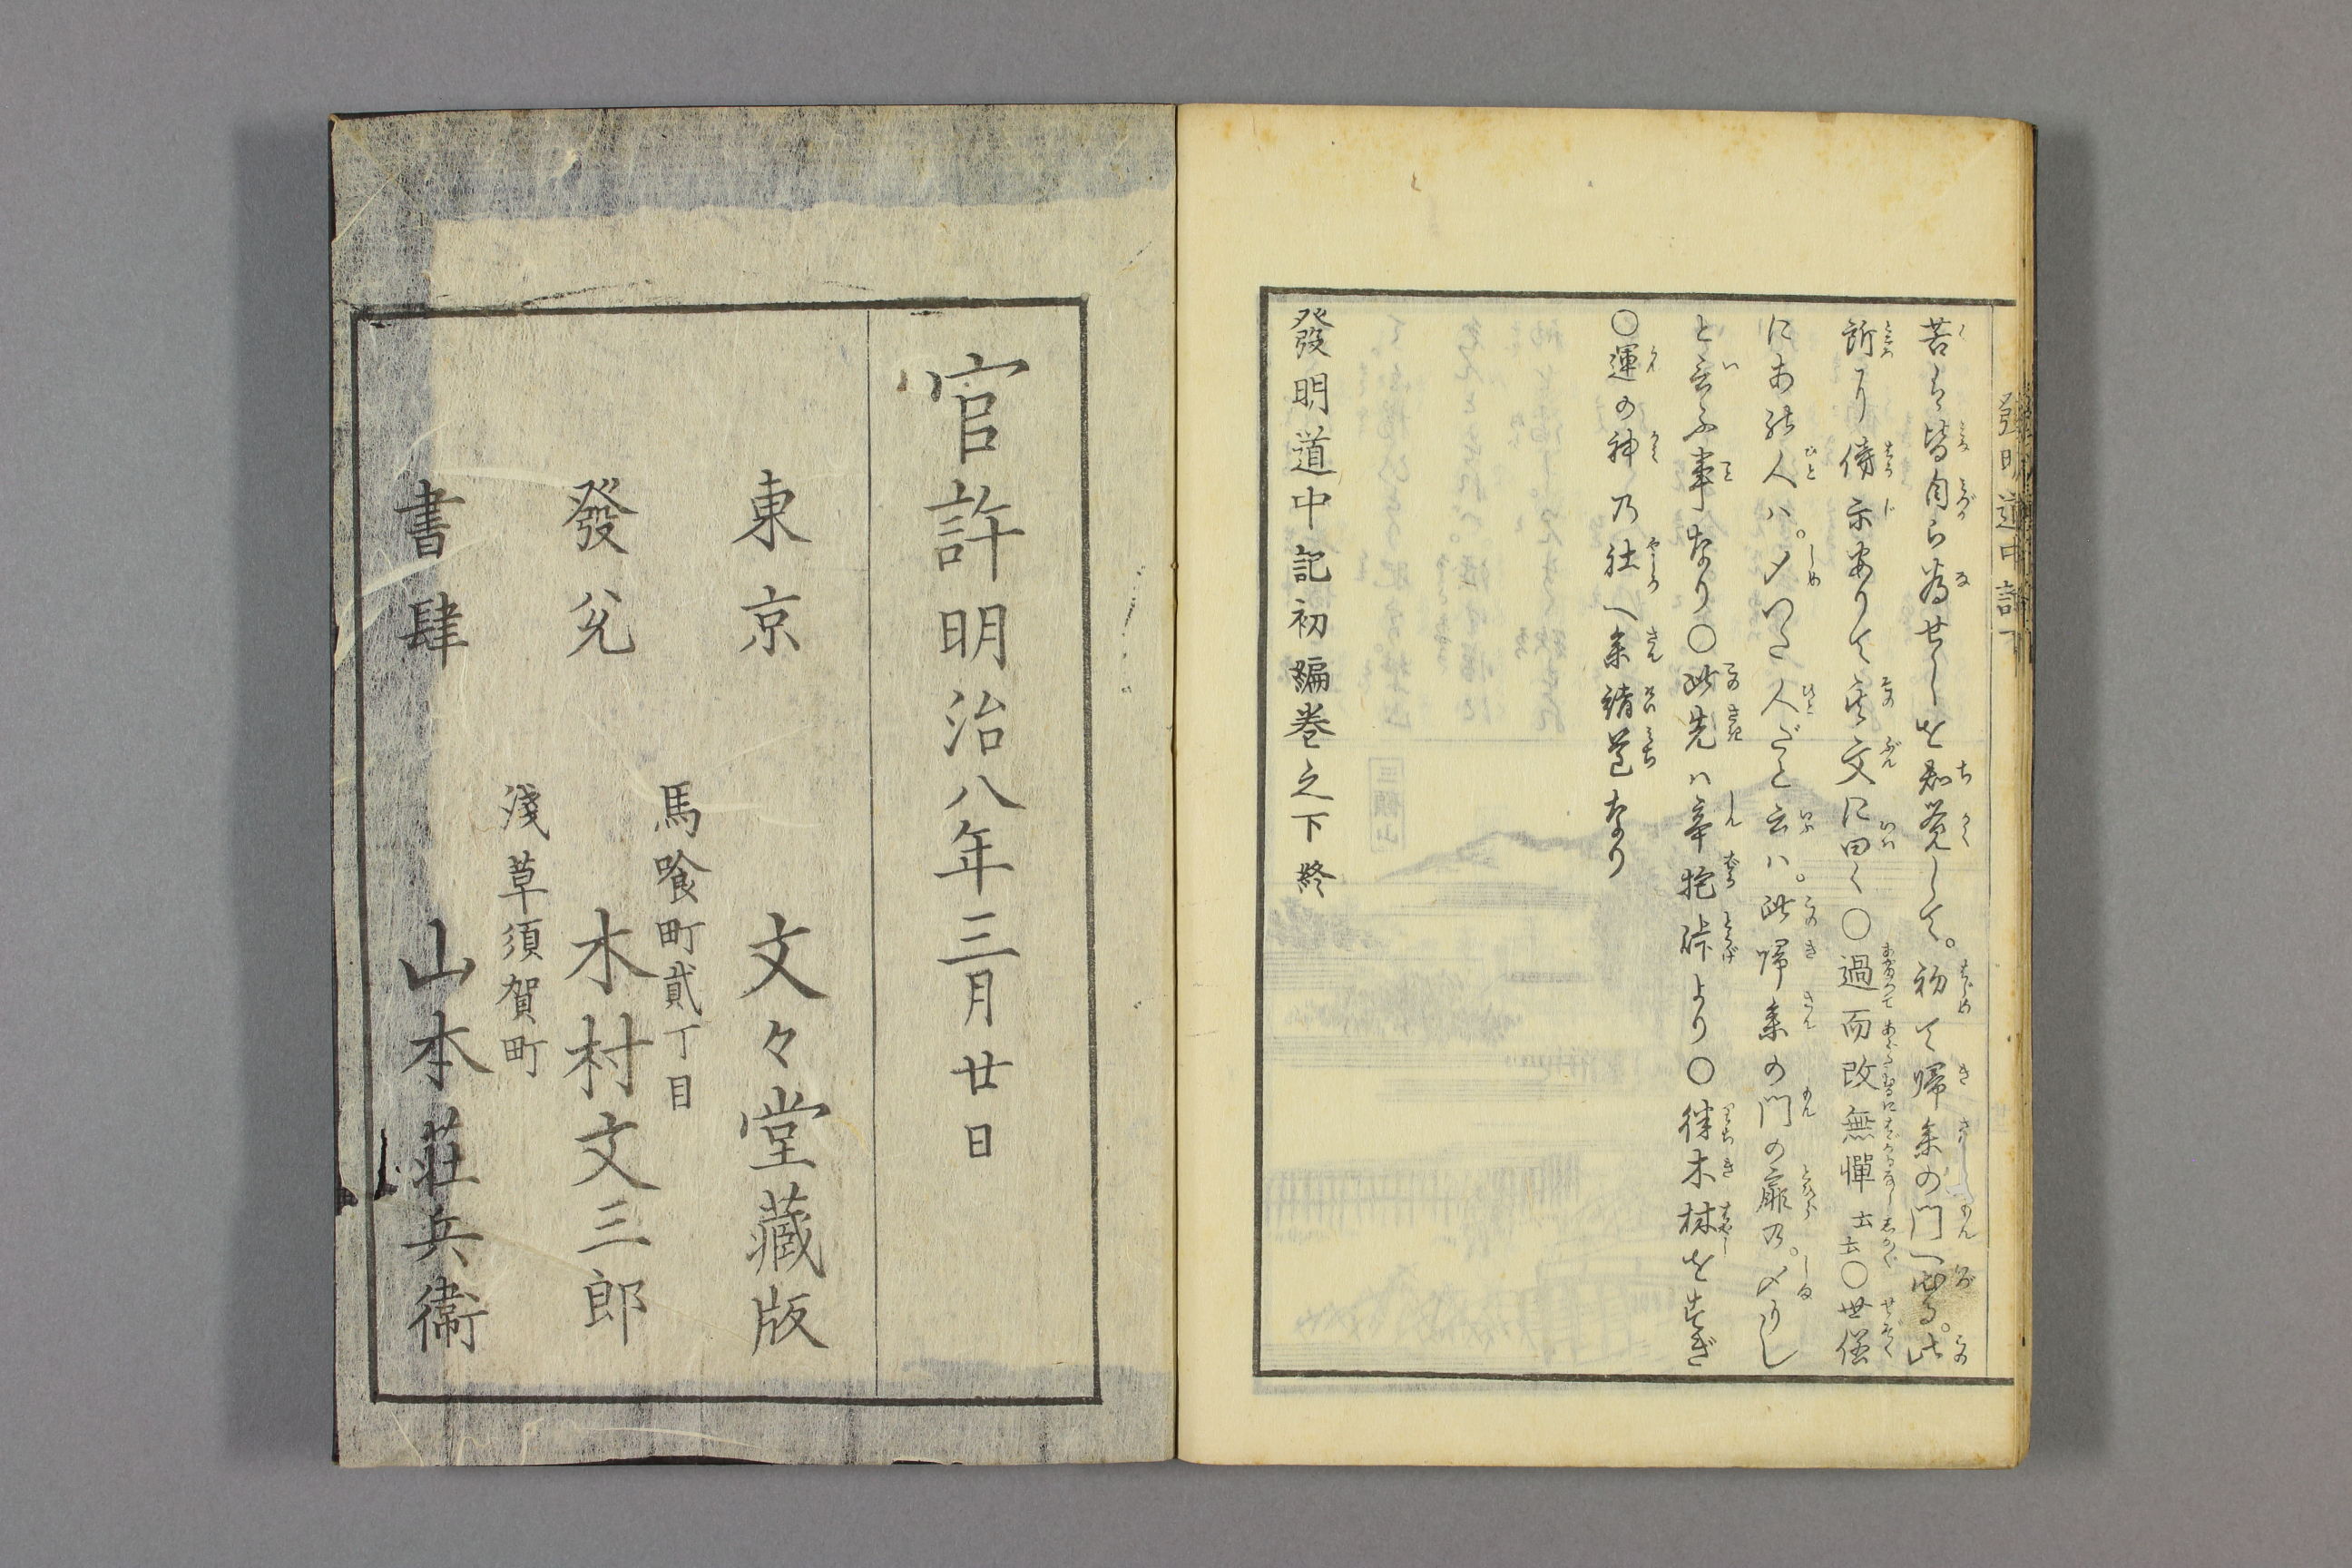 發明道中記下
苦は皆自ら為せしを知覚して。初て帰参の門へ出る。此
所に傍示杭ありて其文に曰く〇過而改無憚云云〇世俗
にある人ハ。〆つた人だと云ハ。此帰参の門の扉乃。〆りし
と云ふ事なり〇此先ハ辛抱峠より〇律木林を過ぎ
〇運の神乃社へ参詣道なり
發明道中記初編巻之下終
官許明治八年三月廿日
東京 文々堂藏版
馬喰町貳丁目
發兌 木村文三郎
淺草須賀町
書肆 山本莊兵衞